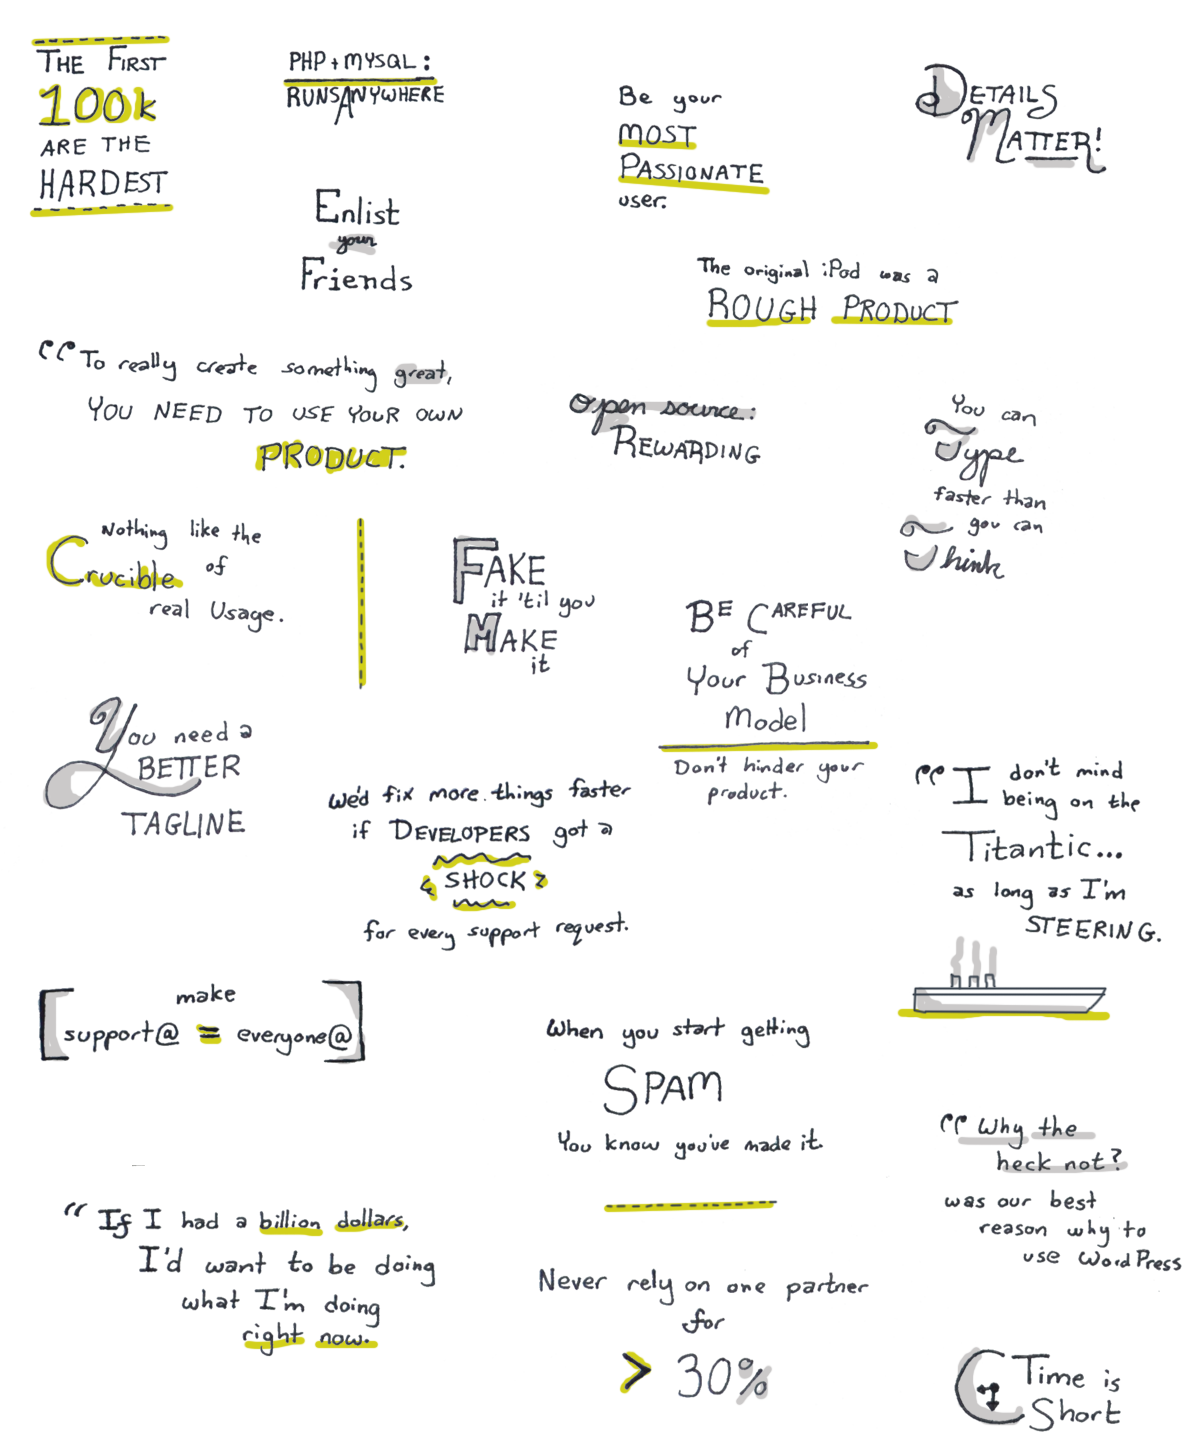 THE FIRST
100k
ARE THE
HARDEST
PHP + MYSQL:
RUNS ANYWHERE
Be your
MOST
PASSIONATE
user.
DETAILS
MATTER!
Enlist
your
Friends
The original iPod was a
ROUGH PRODUCT
“To really create something great,
YOU NEED TO USE YOUR OWN
PRODUCT.
open source:
REWARDING
You can
Type
faster than
you can
Think
Nothing like the
Crucible of
real Usage.
FAKE
it 'til you
MAKE
it
BE CAREFUL
of
Your Business
Model
Don't hinder your
product.
You need a
BETTER
TAGLINE
We'd fix more things faster
if DEVELOPERS got a
SHOCK
for every support request.
“I don't mind
being on the
Titantic...
as long as I'm
STEERING.
make
support@ = everyone@
When you start getting
SPAM
You know you've made it.
“Why the
heck not?
was our best
reason why to
use WordPress
“If I had a billion dollars,
I'd want to be doing
what I'm doing
right now.
Never rely on one partner
for
> 30%
Time is
Short